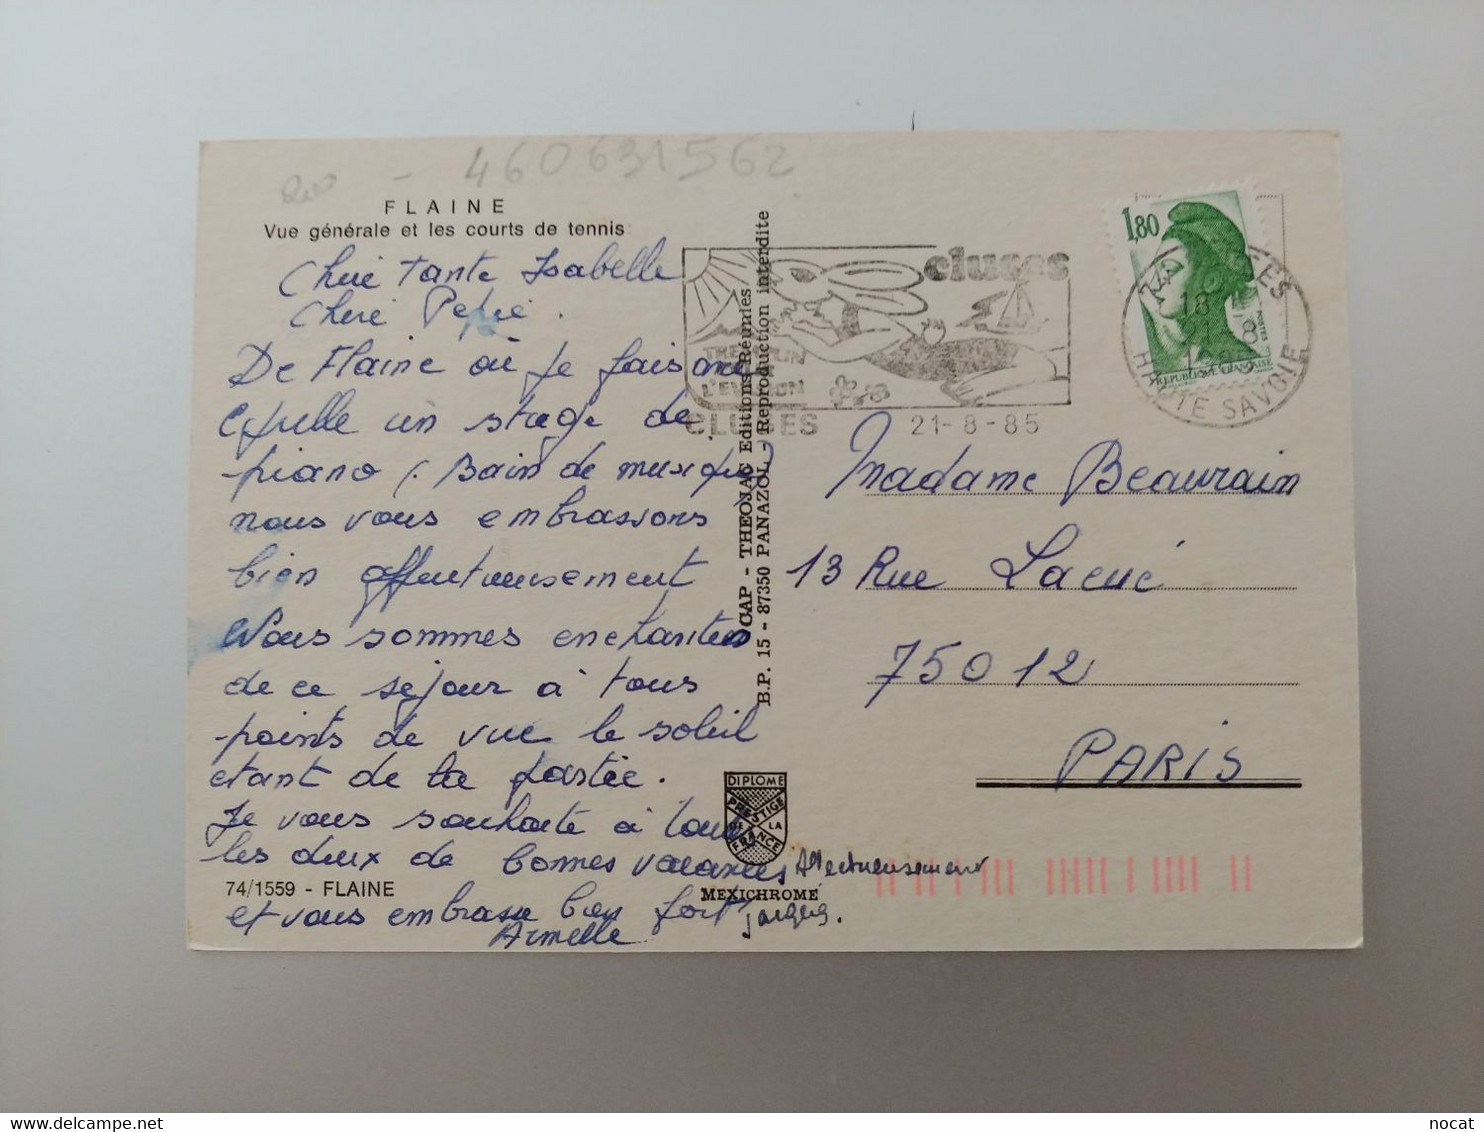 460631562
FLAINE
Vue générale et les courts de tennis
Chère Tante Isabelle
Chère Pepée.
De Flaine où je fais avec
un stage de
piano (Bain de musique)
nous vous embrassons
bien affectueusement
Nous sommes enchantés
de ce séjour à tous
points de vue le soleil
étant de la partie.
Je vous souhaite à toutes
les deux de bonnes vacances
et vous embrasse bien fort
Armelle
Affectueusement
Jacques.
74/1559 - FLAINE
CAP - THEOJAC Editions Réunies
B.P. 15 - 87350 PANAZOL - Reproduction interdite
DIPLOME
PRESTIGE
DE LA
FRANCE
MEXICHROME
cluses
TREMPLIN
L'EVASION
CLUSES
21-8-85
1,80
REPUBLIQUE FRANÇAISE
POSTES
74 CLUSES
18 H
21-8
1985
HAUTE SAVOIE
Madame Beaurain
13 Rue Lacué
75012
PARIS
delcampe.net
nocat